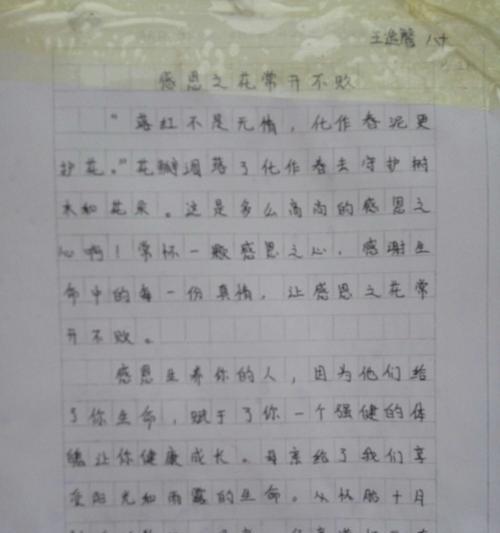 感恩之花常开不败
“落红不是无情，化作春泥更
护花。”花瓣凋落了化作春去守护树
木和花朵。这是多么高尚的感恩之
心啊！常怀一颗感恩之心，感谢生
命中的每一份真情，让感恩之花常
开不败。
感恩生养你的人，因为他们给
了你生命，赋于了你一个强健的体
魄让你健康成长。母亲给了我们享
受阳光和雨露的生命。从怀胎十月